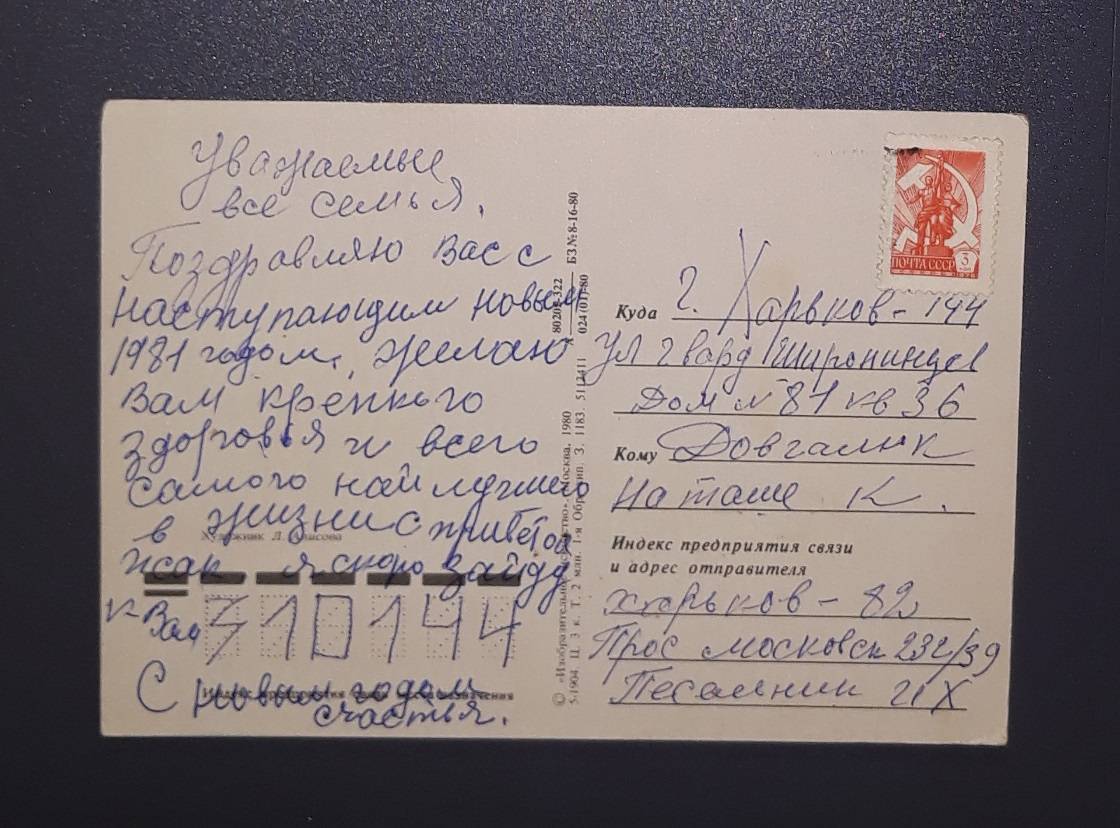 Уважаемые
все семья.
Поздравляю Вас с
наступающим новым
1981 годом, желаю
Вам крепкого
здоровья и всего
самого найлучшего
в жизни с приветом
Исак я скоро зайду
к Вам
310144
С новым годом
счастья.
Художник Л. Власова
Индекс предприятия связи места назначения
© «Изобразительное искусство». Москва, 1980
5-1904. Ц. 3 к. Т. 2 млн. 1-я Обр. тип. З. 1183. 511
БЗ № 8-16-80
024(01)-80
ПОЧТА СССР
3
КОП
Куда г. Харьков-144
ул Гвард Широнинцев
Дом № 81 кв 36
Кому Довгалюк
Наташе К.
Индекс предприятия связи
и адрес отправителя
Харьков-82
Прос московск 232/39
Песельник И Х